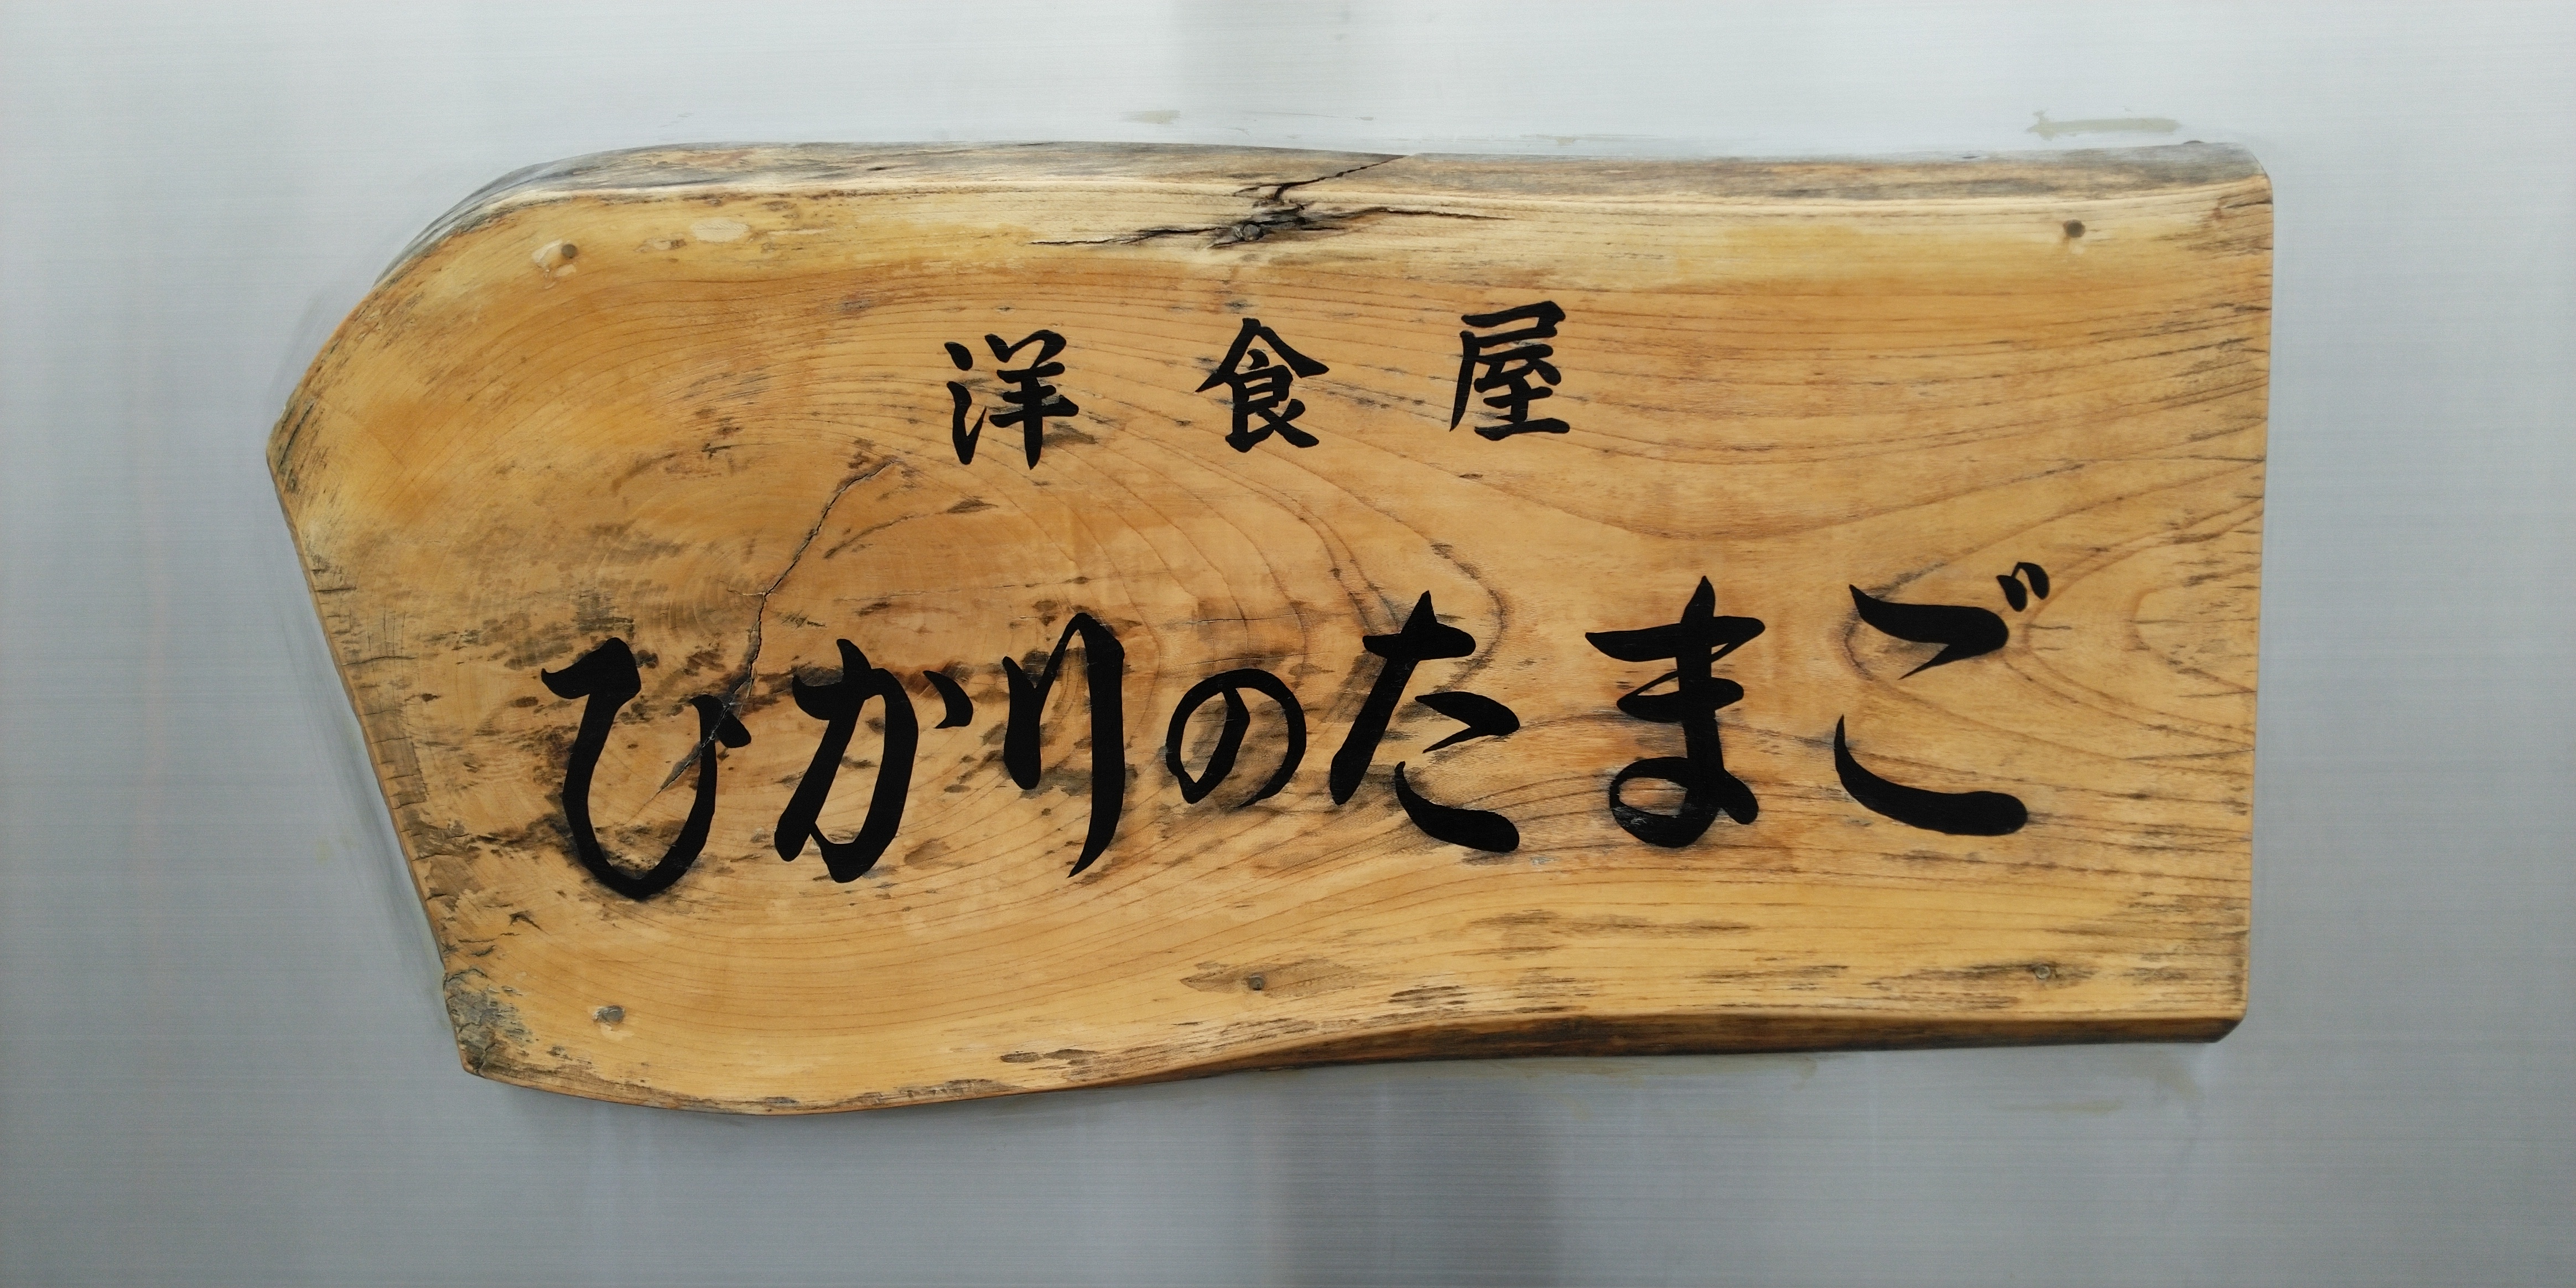 洋食屋
ひかりのたまご